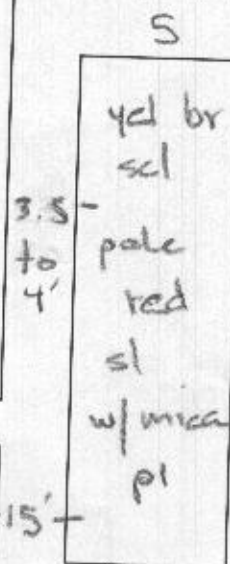 5
yel br
scl
3.5
to
4'
pale
red
sl
w/ mica
pl
15'